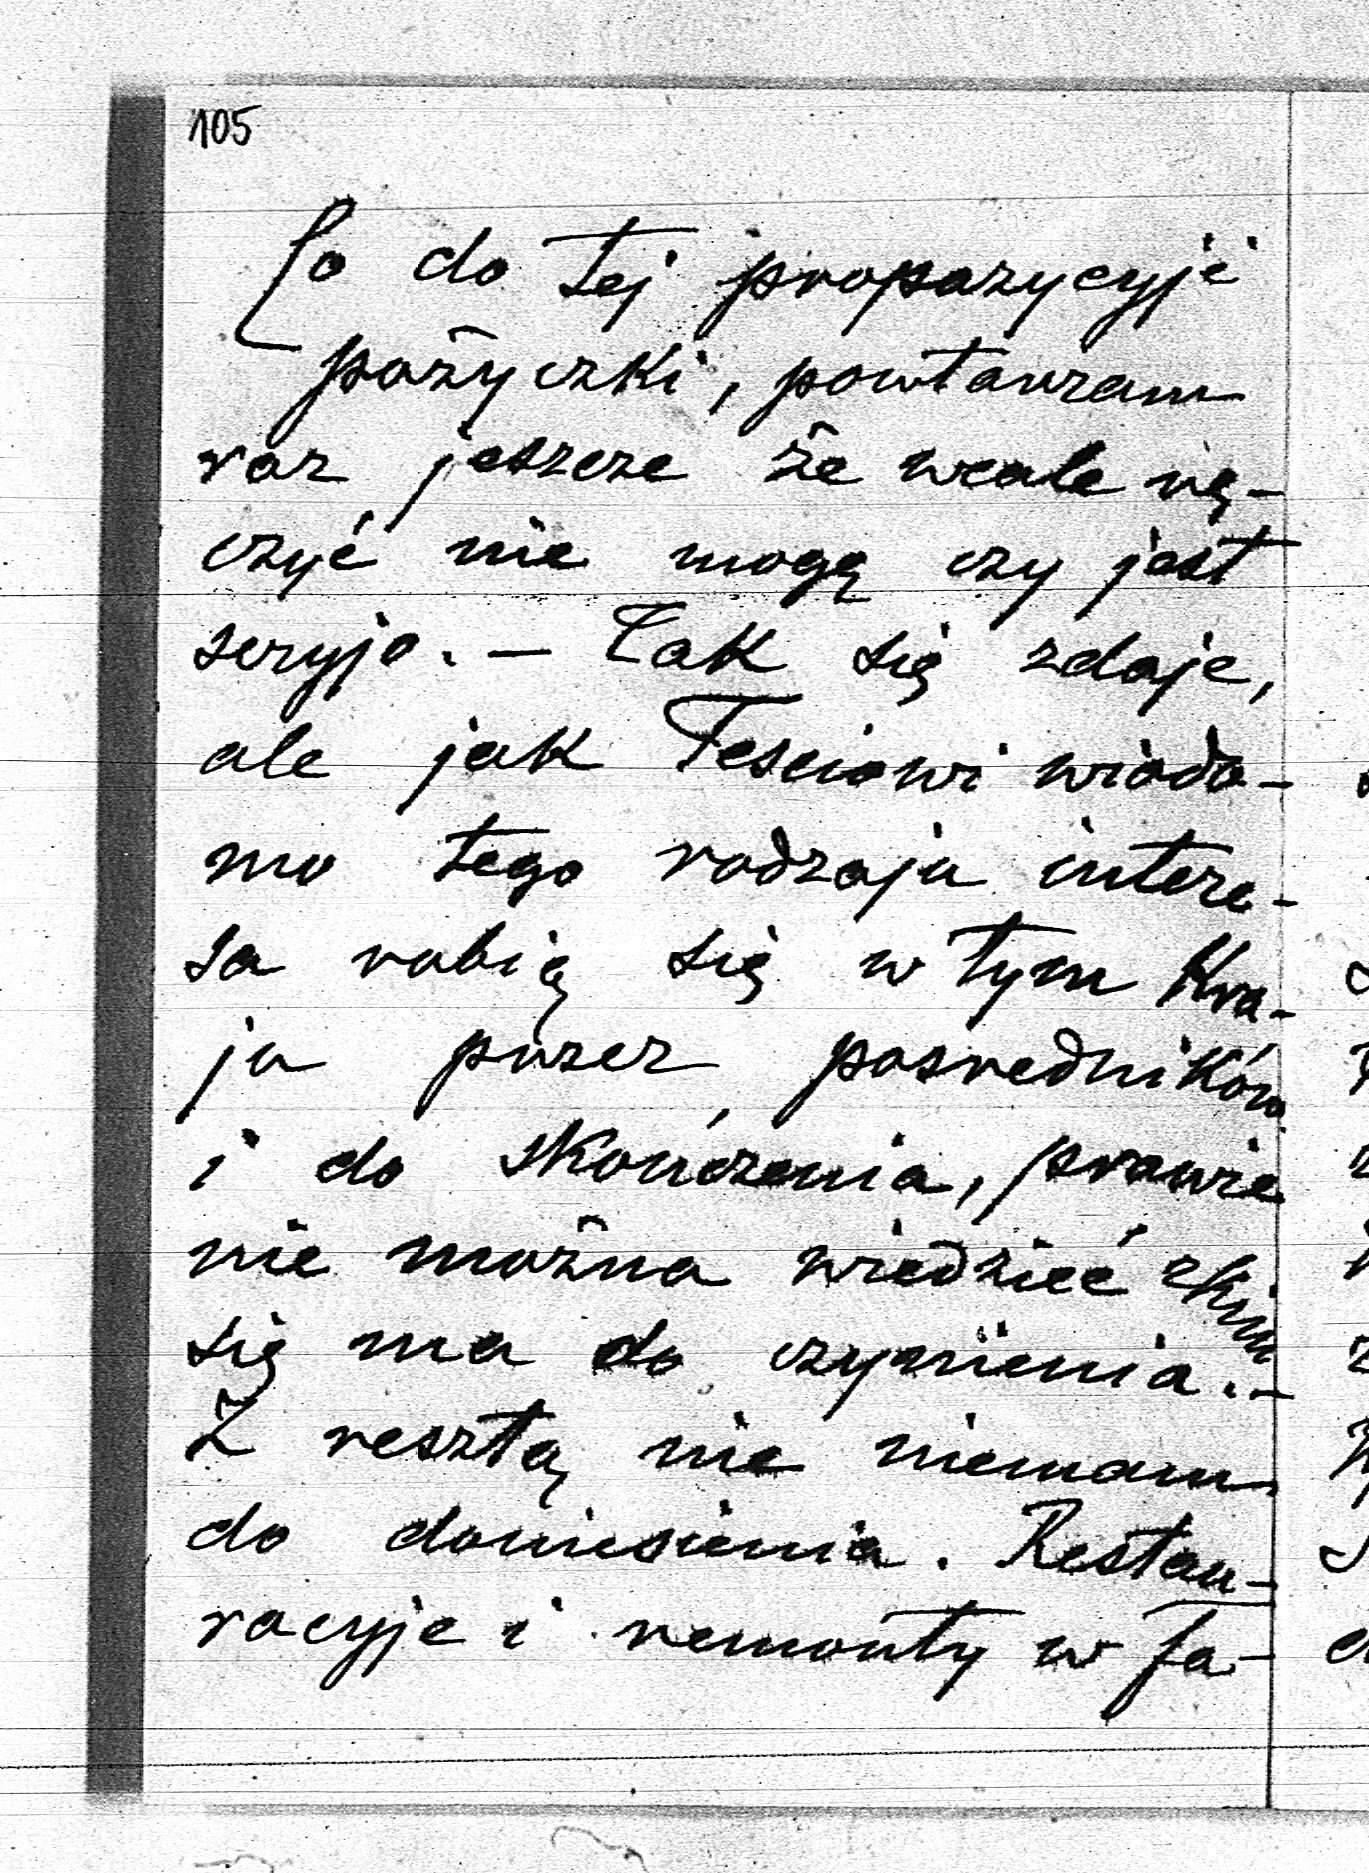 105
Co do tej propozycyji
pożyczki, powtarzam
raz jeszcze że wcale rę-
czyć nie mogę czy jest
seryjo. — Tak się zdaje,
ale jak Teściowi wiado-
mo tego rodzaju intere-
sa robią się w tym Kra-
ju przez pośredników
i do skończenia, prawie
nie można wiedzieć z kim
się ma do czynienia. —
Z resztą nic niemam
do doniesienia. Restau-
racyje i remonty w fa-